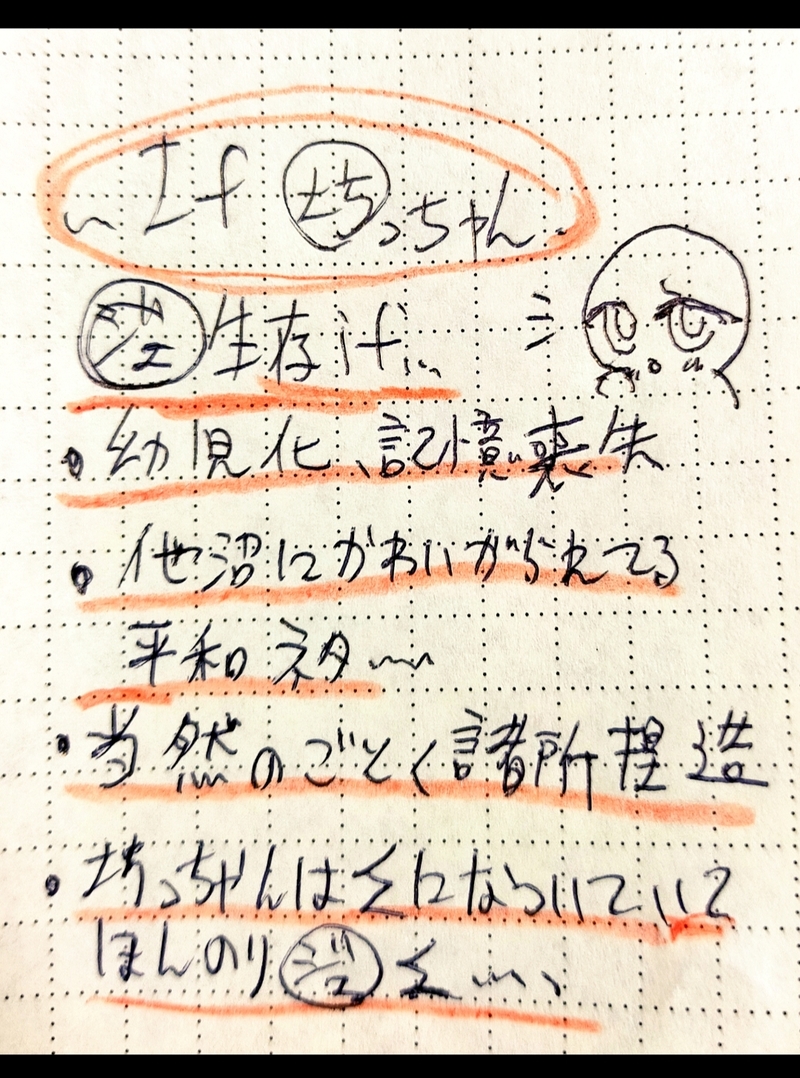 ~ If 坊っちゃん ~
生存if...
・幼児化、記憶喪失
・他沼にかわいがられてる
平和ネタ~~
・当然のごとく諸所捏造
・坊っちゃんは になついていて
ほんのり